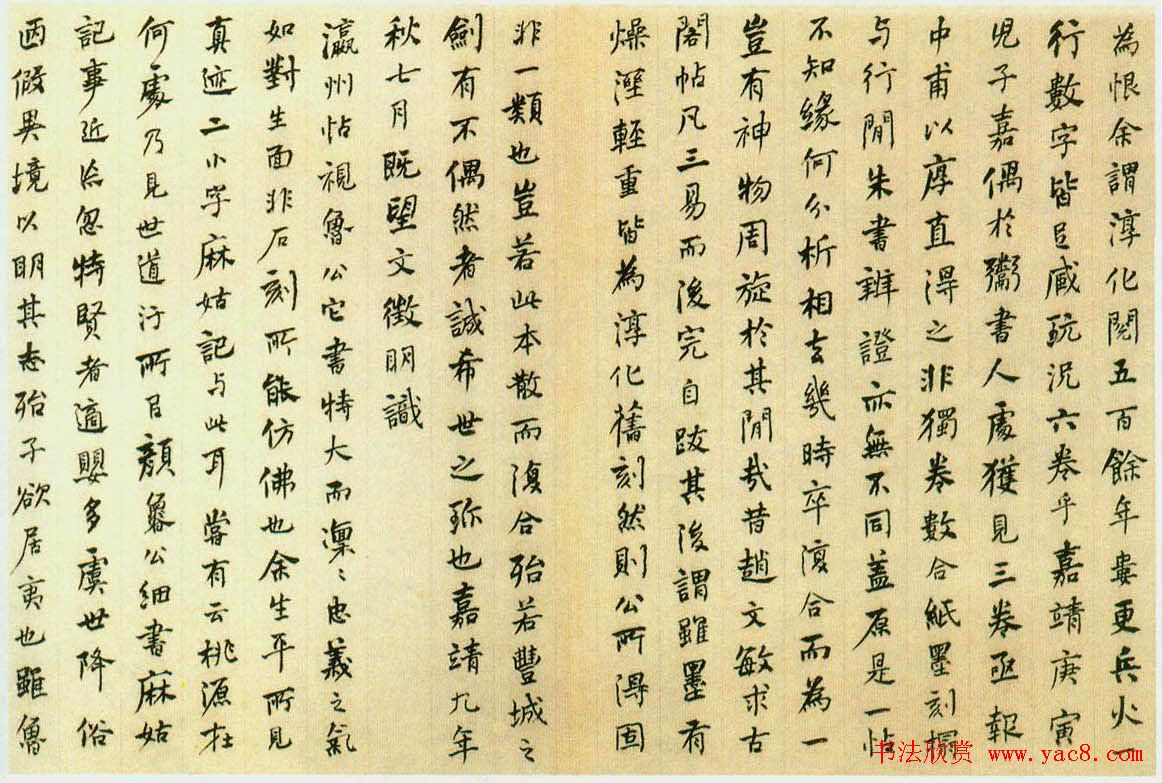 為恨余謂淳化閣五百餘年婁更兵火一
行數字皆㠯臧玩況六卷乎嘉靖庚寅
児子嘉偶於鬻書人處獲見三卷亟報
中甫以厚直得之非獨卷數合紙墨刻搨
与行閒朱書雜證亦無不同盖原是一帖
不知緣何分析相去幾時卒復合而為一
豈有神物周旋於其閒哉昔趙文敏求古
閣帖凡三易而後完自跋其後謂雖墨有
燥溼輕重皆為淳化舊刻然則公所得固
非一類也豈若此本散而復合殆若豐城之
劍有不偶然者誠希世之珎也嘉靖九年
秋七月既望文徵明識
瀛州帖視魯公它書特大而凜〻忠義之氣
如對生面非石刻所能仿佛也余生平所見
真迹二小字麻姑記与此耳嘗有云桃源在
何處乃見世道汙所㠯顏魯公細書麻姑
記事近流忽特賢者適嬰多虞世降俗
迺假異境以明其志殆子欲居夷也雖魯
书法欣赏 www.yac8.com